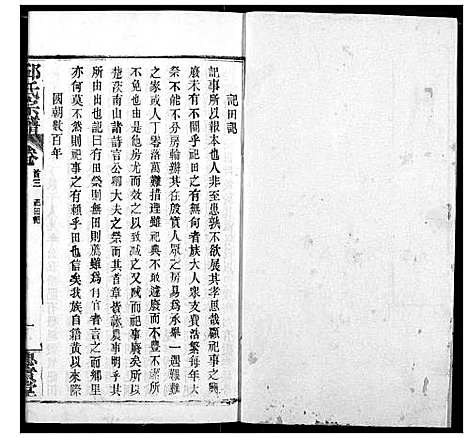 祀田記
祀事所以報本也人非至愚孰不欲展其孝思哉顧祀事之興
廢未有不關乎祀田之有無何者族大人衆支費浩繁每年大
祭不能不分房輪辦其在殷實人衆之房易爲承舉一遇艱難
之家或人丁零落萬難措理雖祀典不敢遽廢而不豐不潔
不免也由是他房尤而效之以次減之又減而祀事廢矣所以
楚茨南山諸詩言公卿大夫之祭而其首章皆詠農事明乎其
所由田也記曰有田祭則無田則薦雖爲有官者言之而鄉里
亦何莫不然則祀事之有賴乎田也信矣我族自籍黃以來際
國朝數百年
邱氏宗譜
卷首三
祀田記
一